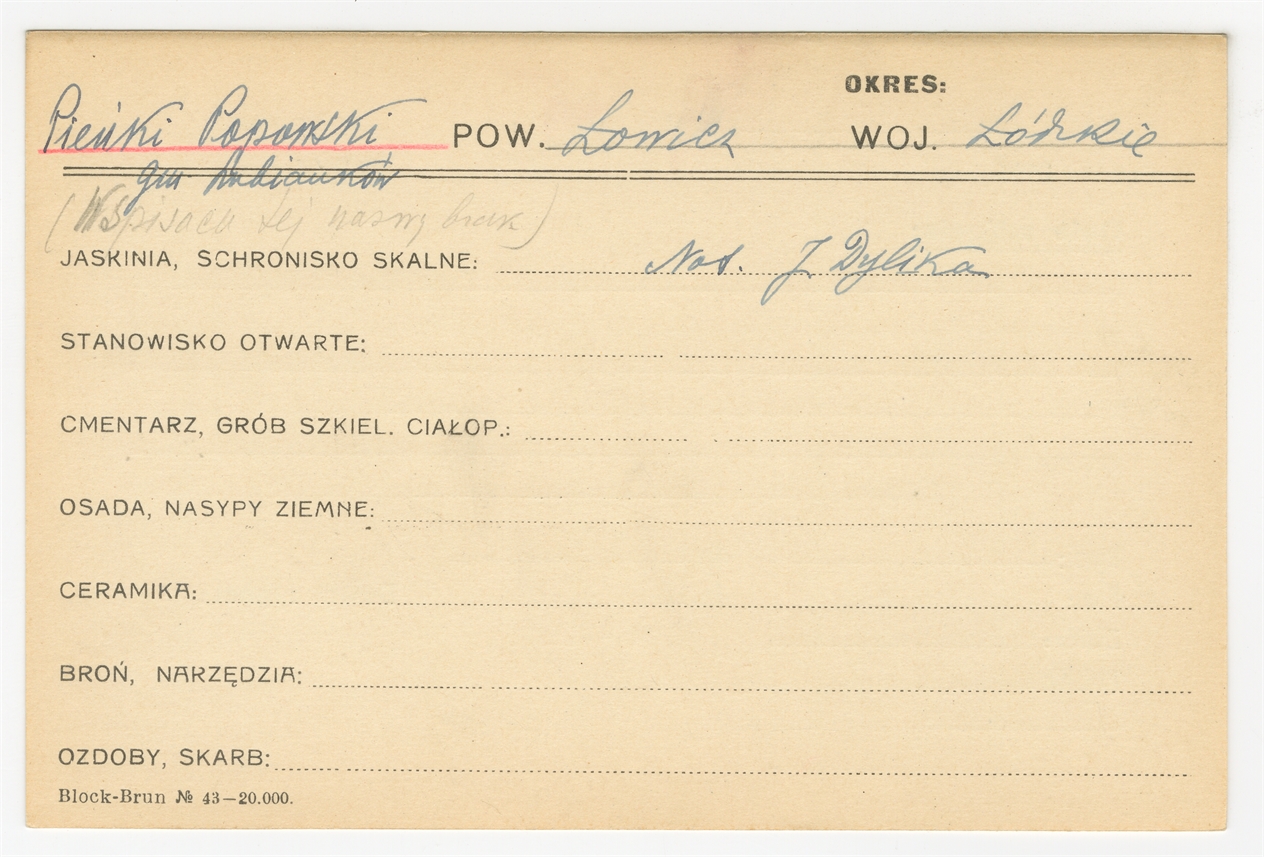 OKRES:
Pieńki Popowski POW. Łowicz WOJ. Łódzkie
gm Lubianków
(W spisach tej nazwy brak)
JASKINIA, SCHRONISKO SKALNE: Not. J. Dylika
STANOWISKO OTWARTE:
CMENTARZ, GRÓB SZKIEL. CIAŁOP.:
OSADA, NASYPY ZIEMNE:
CERAMIKA:
BROŃ, NARZĘDZIA:
OZDOBY, SKARB:
Block-Brun № 43—20.000.